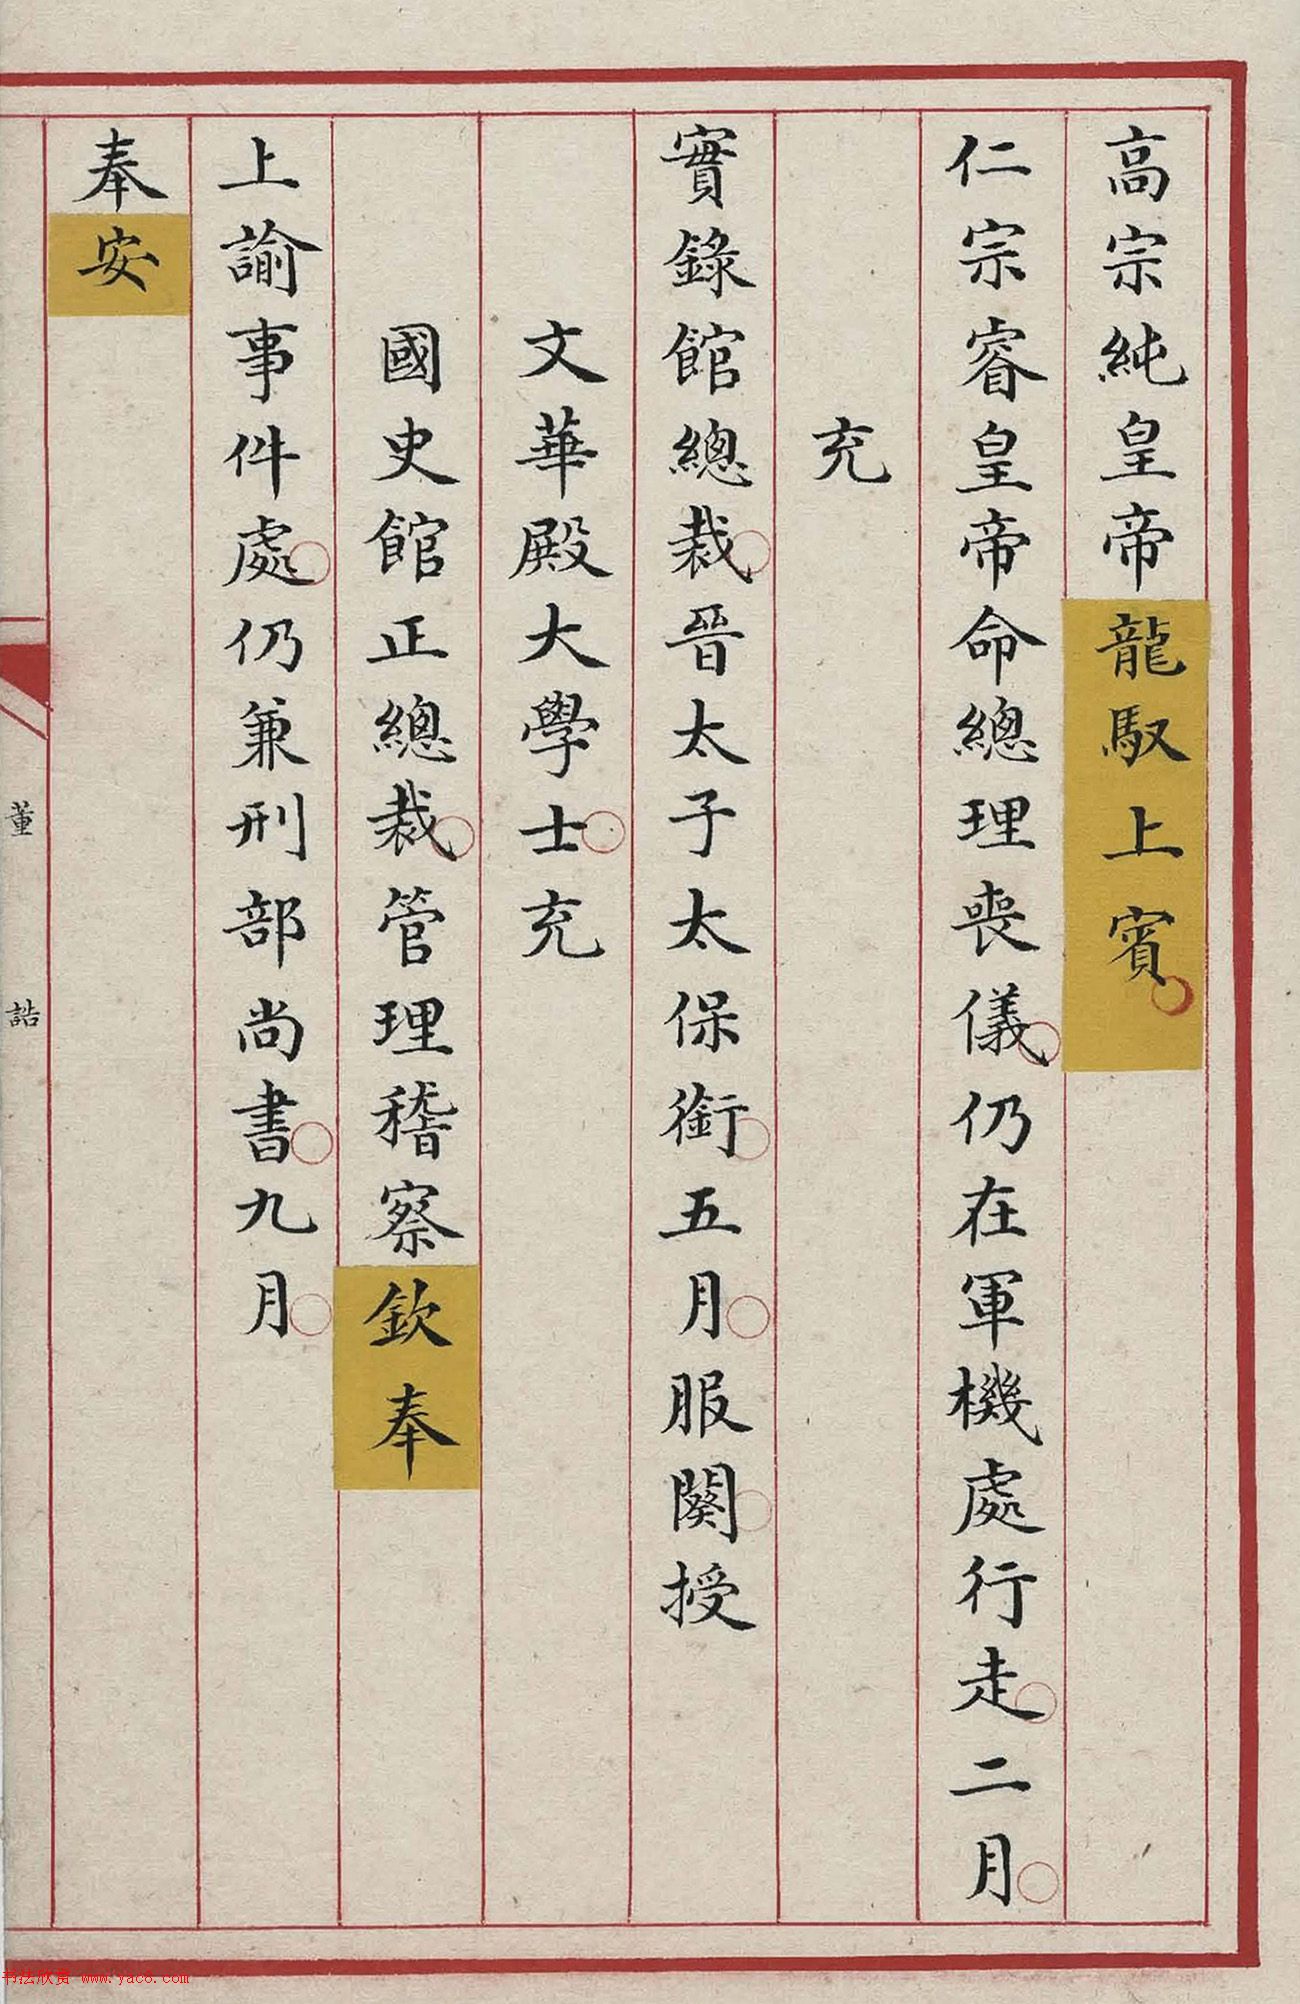 高宗純皇帝龍馭上賓
仁宗睿皇帝命總理喪儀仍在軍機處行走二月
充
實錄館總裁晉太子太保銜五月服闋授
文華殿大學士充
國史館正總裁管理稽察欽奉
上諭事件處仍兼刑部尚書九月
奉安
董誥
书法欣赏 www.yac8.com